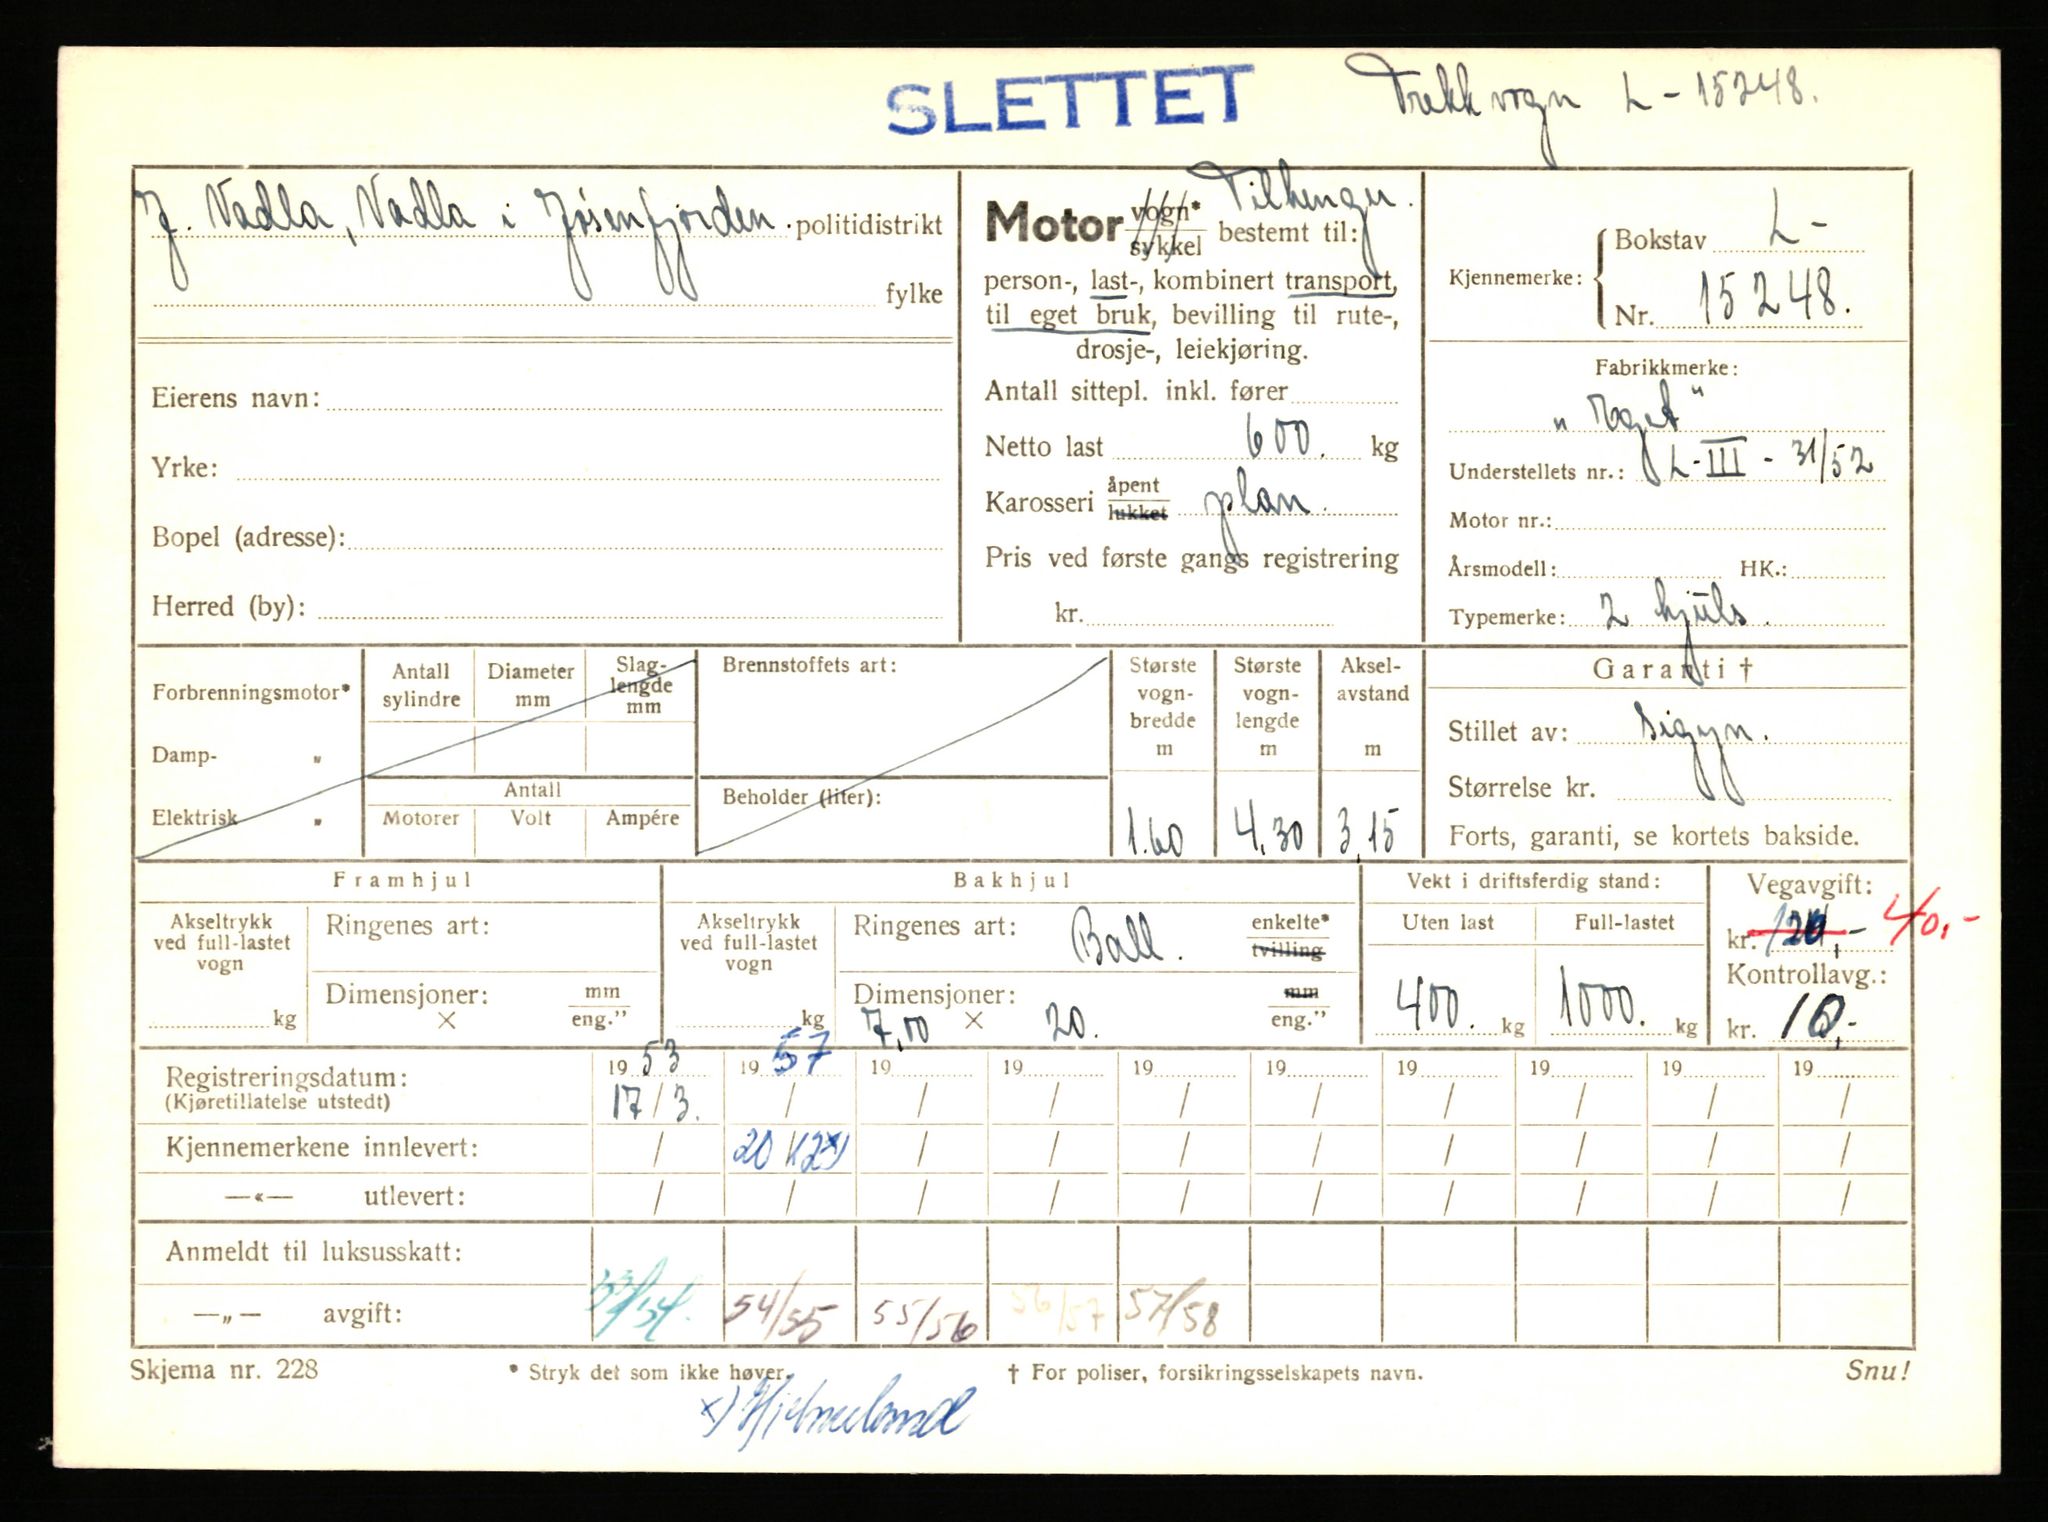 SLETTET
Trekkvogn L-15248.
J. Vadla, Vadla i Jøsenfjorden. politidistrikt
fylke
Eierens navn:
Yrke:
Bopel (adresse):
Herred (by):
Tilhenger.
Motor vogn* sykkel bestemt til:
person-, last-, kombinert transport,
til eget bruk, bevilling til rute-,
drosje-, leiekjøring.
Antall sittepl. inkl. fører
Netto last 600. kg
Karosseri åpent lukket plan.
Pris ved første gangs registrering
kr.
Kjennemerke: Bokstav L-
Nr. 15248.
Fabrikkmerke:
„Eget"
Understellets nr.: L-III-31/52
Motor nr.:
Årsmodell: HK.:
Typemerke: 2 hjuls.
Forbrenningsmotor*
Damp- „
Elektrisk „
Antall sylindre
Diameter mm
Slaglengde mm
Antall
Motorer Volt Ampére
Brennstoffets art:
Beholder (liter):
Største vognbredde m 1.60
Største vognlengde m 4,30
Akselavstand m 3,15
Garanti †
Stillet av: Sigyn.
Størrelse kr.
Forts, garanti, se kortets bakside.
Framhjul
Akseltrykk ved full-lastet vogn
kg
Ringenes art:
Dimensjoner: mm
× eng."
Bakhjul
Akseltrykk ved full-lastet vogn
kg
Ringenes art: Ball. enkelte* tvilling
Dimensjoner: mm
7,00 × 20. eng."
Vekt i driftsferdig stand:
Uten last Full-lastet
400. kg 1000. kg
Vegavgift:
kr. 120,- 40,-
Kontrollavg.:
kr. 10,-
19 53 19 57 19 19 19 19 19 19 19 19
Registreringsdatum:
(Kjøretillatelse utstedt) 17/3. / / / / / / / / /
Kjennemerkene innlevert: / 20/12x) / / / / / / / /
—«— utlevert: / / / / / / / / / /
Anmeldt til luksusskatt:
—„— avgift: 53/54. 54/55 55/56 56/57 57/58
Skjema nr. 228 * Stryk det som ikke høver. † For poliser, forsikringsselskapets navn. Snu!
x) Hjelmeland